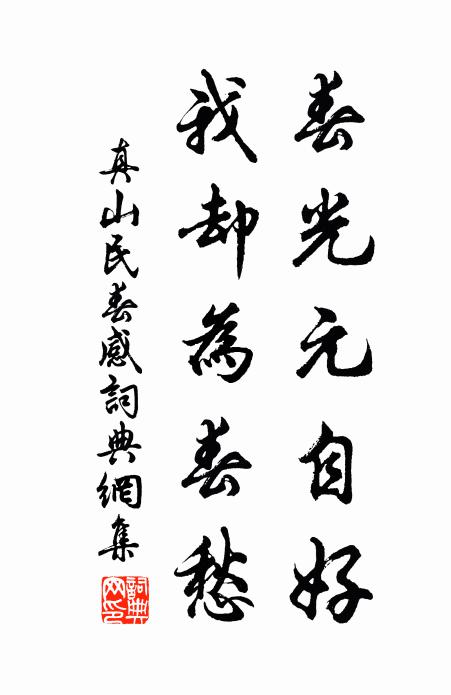 春光元自好
我却為春愁
真山民春感詞典網集
詞典
网印